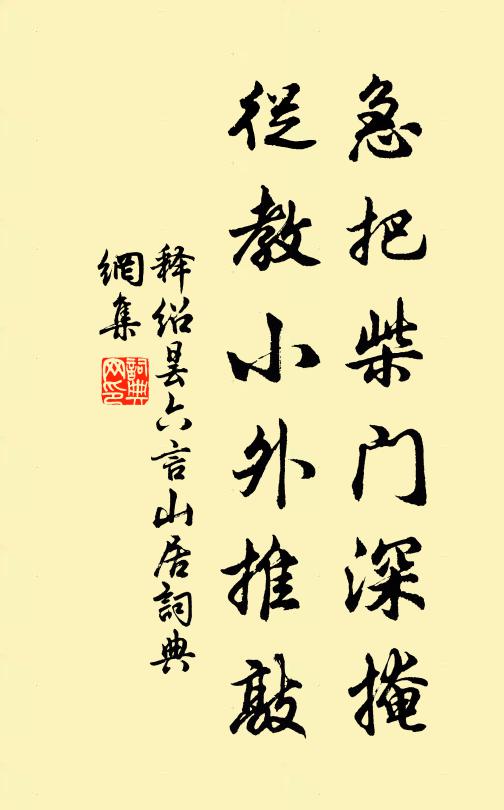 急把柴门深掩
從教小外推敲
释绍昙六言山居詞典
網集
詞典
网印